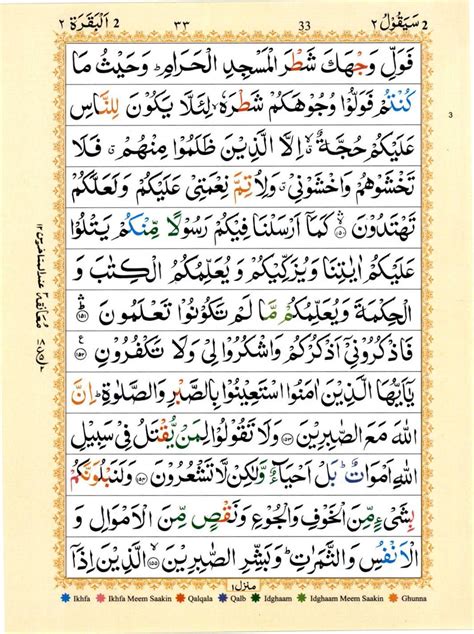 سَيَقُولُ ٢ 2
33
٣٣
اَلْبَقَرَة ٢ 2
فَوَلِّ وَجْهَكَ شَطْرَ الْمَسْجِدِ الْحَرَامِ ؕ وَحَيْثُ مَا
كُنْتُمْ فَوَلُّوْا وُجُوْهَكُمْ شَطْرَهٗ ۙ لِئَلَّا يَكُوْنَ لِلنَّاسِ
عَلَيْكُمْ حُجَّةٌ ۙ اِلَّا الَّذِيْنَ ظَلَمُوْا مِنْهُمْ ۗ فَلَا
تَخْشَوْهُمْ وَاخْشَوْنِيْ ۗ وَلِاُتِمَّ نِعْمَتِيْ عَلَيْكُمْ وَلَعَلَّكُمْ
تَهْتَدُوْنَ ۙ ١٥٠ كَمَاۤ اَرْسَلْنَا فِيْكُمْ رَسُوْلًا مِّنْكُمْ يَتْلُوْا
عَلَيْكُمْ اٰيٰتِنَا وَيُزَكِّيْكُمْ وَيُعَلِّمُكُمُ الْكِتٰبَ وَ
الْحِكْمَةَ وَيُعَلِّمُكُمْ مَّا لَمْ تَكُوْنُوْا تَعْلَمُوْنَ ؕ ١٥١
فَاذْكُرُوْنِيْۤ اَذْكُرْكُمْ وَاشْكُرُوْا لِيْ وَلَا تَكْفُرُوْنِ
يٰۤاَيُّهَا الَّذِيْنَ اٰمَنُوا اسْتَعِيْنُوْا بِالصَّبْرِ وَالصَّلٰوةِ ؕ اِنَّ
اللّٰهَ مَعَ الصّٰبِرِيْنَ ١٥٣ وَلَا تَقُوْلُوْا لِمَنْ يُّقْتَلُ فِيْ سَبِيْلِ
اللّٰهِ اَمْوَاتٌ ؕ بَلْ اَحْيَآءٌ وَّلٰكِنْ لَّا تَشْعُرُوْنَ ١٥٤ وَلَنَبْلُوَنَّكُمْ
بِشَيْءٍ مِّنَ الْخَوْفِ وَالْجُوْعِ وَنَقْصٍ مِّنَ الْاَمْوَالِ وَ
الْاَنْفُسِ وَالثَّمَرٰتِ ؕ وَبَشِّرِ الصّٰبِرِيْنَ ۙ ١٥٥ الَّذِيْنَ اِذَاۤ
منزل ١
Ikhfa Ikhfa Meem Saakin Qalqala Qalb Idghaam Idghaam Meem Saakin Ghunna
3